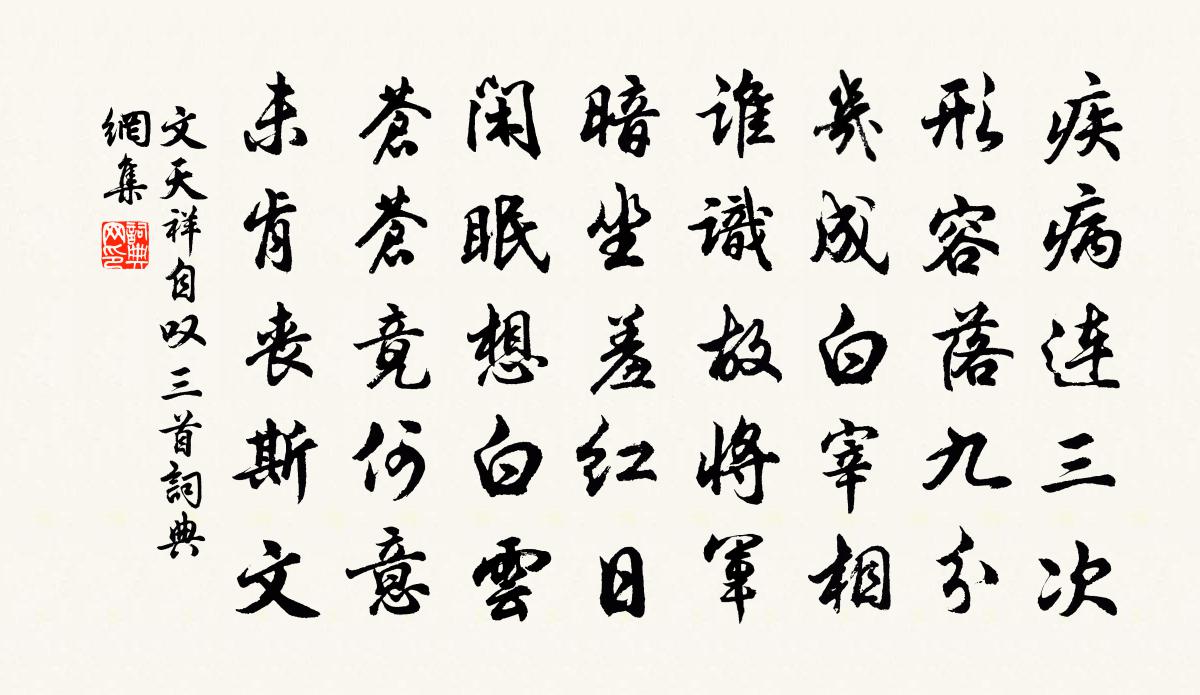 疾病连三次
形容落九分
幾成白宰相
谁識故將軍
暗坐羞红日
闲眠想白雲
蒼蒼竟何意
未肯丧斯文
文天祥自叹三首詞典
網集
詞典
网印